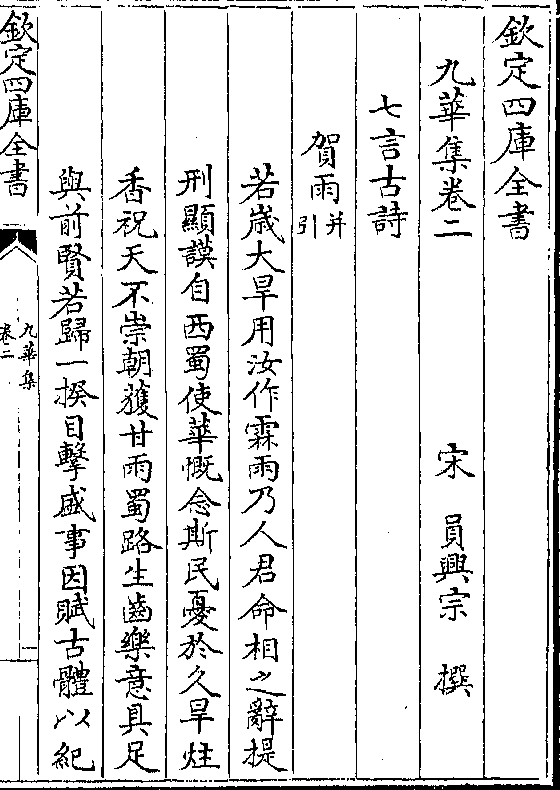 欽定四庫全書
九華集卷二　宋　員興宗　撰
七言古詩
賀雨并引
若歳大旱用汝作霖雨乃人君命相之辭提
刑顯謨自西蜀使華慨念斯民憂於久旱炷
香祝天不崇朝獲甘雨蜀路生齒樂意具足
與前賢若歸一揆目擊盛事因賦古體以紀
欽定四庫全書
九華集
卷二
一